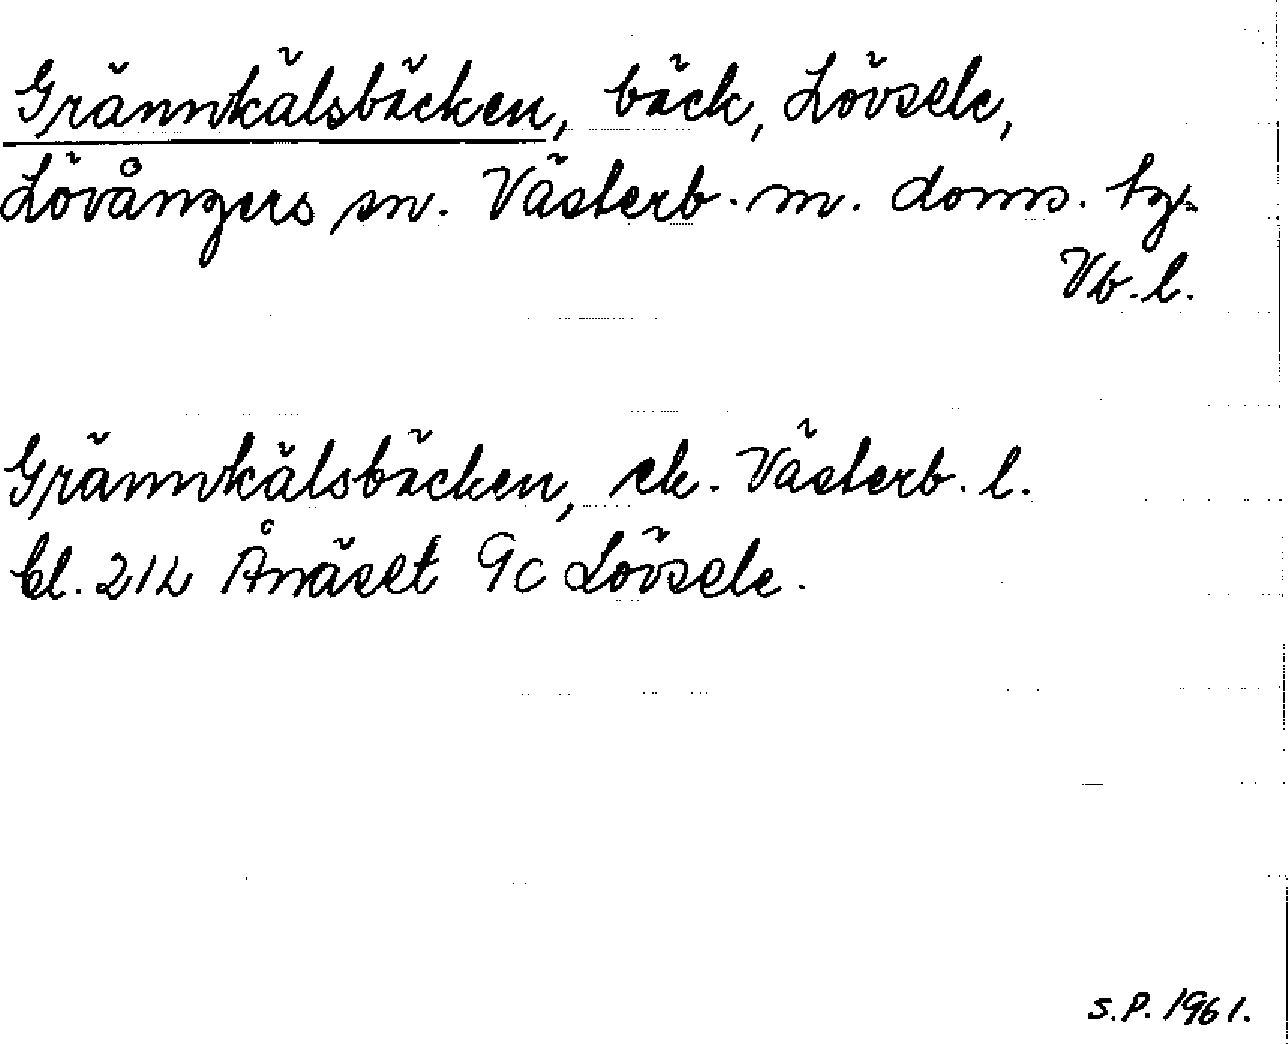 Grännkälsbäcken, bäck, Lövsele,
Lövångers sn. Västerb. m. doms. tg.
Vb. l.
Grännkälsbäcken, ek. Västerb. l.
bl. 21L Ånäset 9c Lövsele.
S.P. 1961.